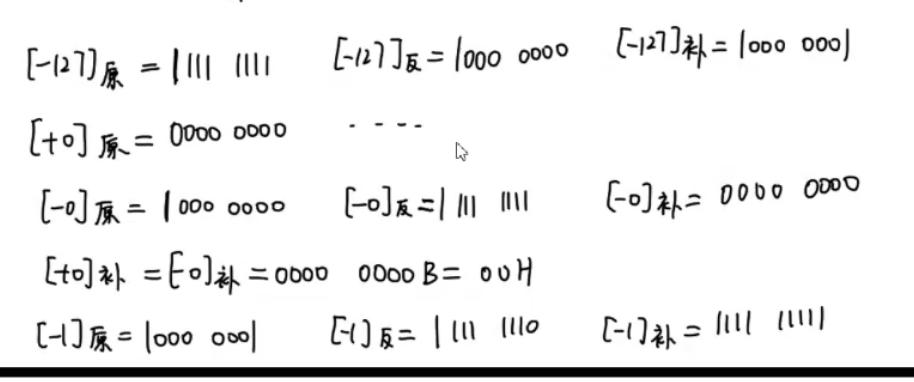 [-127]原 = 1111 1111 [-127]反 = 1000 0000 [-127]补 = 1000 0001
[+0]原 = 0000 0000 ----
[-0]原 = 1000 0000 [-0]反 = 1111 1111 [-0]补 = 0000 0000
[+0]补 = [-0]补 = 0000 0000B = 00H
[-1]原 = 1000 0001 [-1]反 = 1111 1110 [-1]补 = 1111 11111